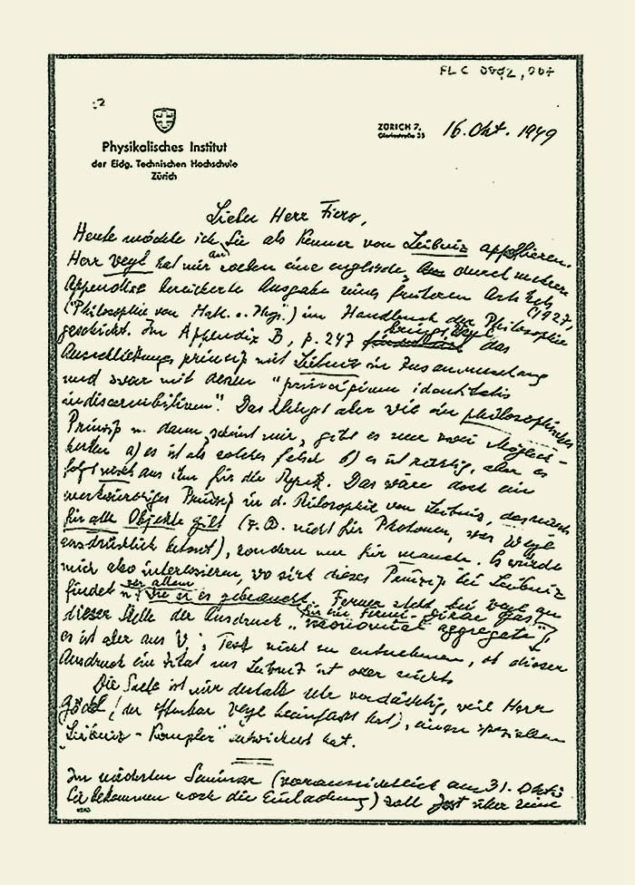 FLC
:2
Physikalisches Institut
der Eidg. Technischen Hochschule
Zürich
ZÜRICH 7, 16. Okt. 1949
Gloriastraße 35
Lieber Herr Fierz,
Heute möchte ich Sie als Kenner von Leibniz
Herr Weyl hat mir soeben eine englische, durch mehrere
Appendices bereicherte Ausgabe seines früheren Artikels (1927,
("Philosophie von Math. u. Nat.") im Handbuch der Philosophie
geschickt. Im Appendix B, p. 247 bringt Weyl das
Ausschließungsprinzip mit Leibniz in Zusammenhang
und zwar mit dessen "principium identitatis
indiscernibilium". Das klingt aber wie ein philosophisches
Prinzip u. dann, scheint mir, gibt es nur zwei Möglich-
keiten a) es ist als solches falsch b) es ist richtig, aber es
folgt nichts aus ihm für die Physik. Das wäre doch ein
merkwürdiges Prinzip in d. Philosophie von Leibniz, das nicht
für alle Objekte gilt (z.B. nicht für Photonen, wie Weyl
ausdrücklich betont), sondern nur für manche. Es würde
mich also interessieren, wo sich dieses Prinzip bei Leibniz
findet u. vor allem wie er es gebraucht. Ferner steht bei Weyl an
dieser Stelle der Ausdruck für ein Fermi-Dirac Gas
es ist aber aus W.'s Text nicht zu entnehmen, ob dieser
Ausdruck ein Zitat aus Leibniz ist oder nicht.
Die Stelle ist mir deshalb sehr verdächtig, weil Herr
Gödel (der offenbar Weyl beeinflusst hat), einen speziellen
"Leibniz-Komplex" entwickelt hat.
Im nächsten Seminar (voraussichtlich am 31. Oktober
Sie bekommen noch die Einladung) soll Jost über seine